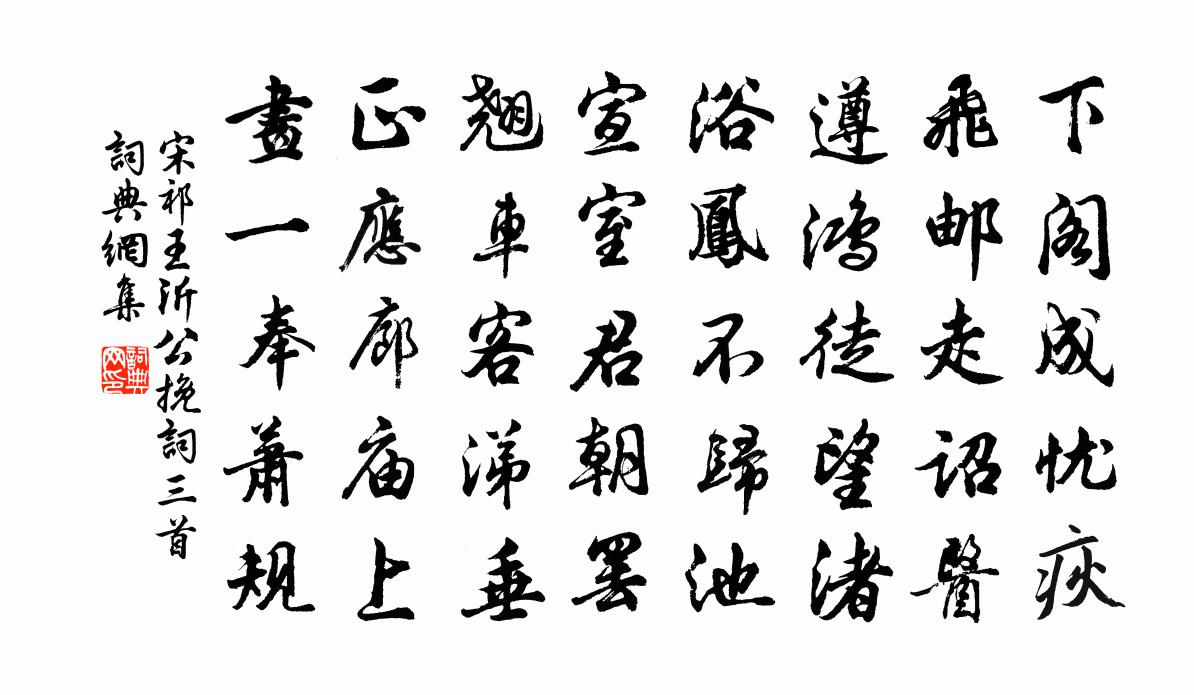 下阁成忧疢
飛邮走詔醫
遵鸿徒望渚
浴鳳不歸池
宣室君朝罢
翘車客涕垂
正應廊庙上
畫一奉蕭規
宋祁王沂公挽詞三首
詞典網集
詞典网印